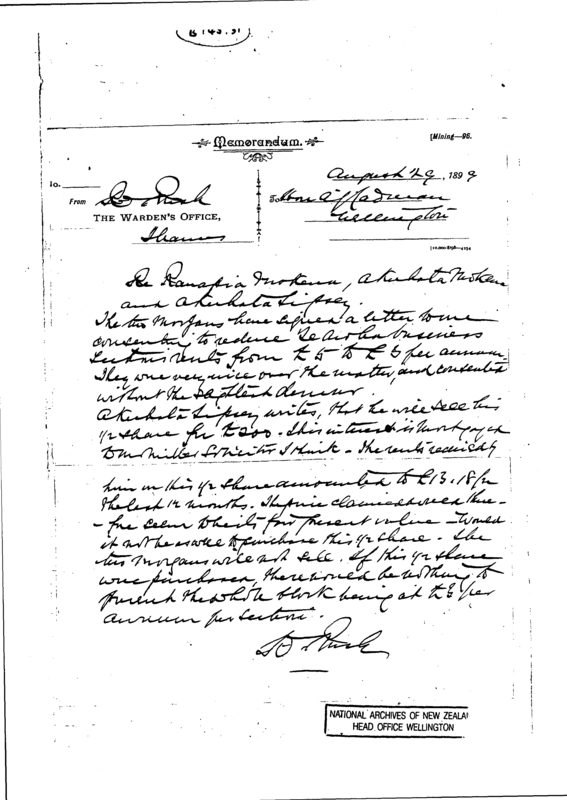 B 143.51
Memorandum.
[Mining—96.
August 29, 1899
To.
From
To Hon A J Cadman
Wellington
THE WARDEN'S OFFICE,
Thames
Re Ranapia Mokena, Akuhata Mokena
and Akuhata Lipsey.
The two Morgans have signed a letter to me
consenting to reduce Te Aroha business
Section rents from £5 to £ per annum.
They were very nice over the matter, and consented
without the slightest demur.
Akuhata Lipsey writes, that he will sell his
share for £200. This interest is mortgaged
to Mr Miller Solicitor I think - The rents received by
him on this share amounted to £13.18/ for
the last 12 months. The price claimed would there-
-fore seem to be its fair present value - Would
it not be as well to purchase this share. The
two Morgans will not sell. If this share
were purchased, there would be nothing to
prevent the whole block being at £ per
annum per section.
NATIONAL ARCHIVES OF NEW ZEALA
HEAD OFFICE WELLINGTON